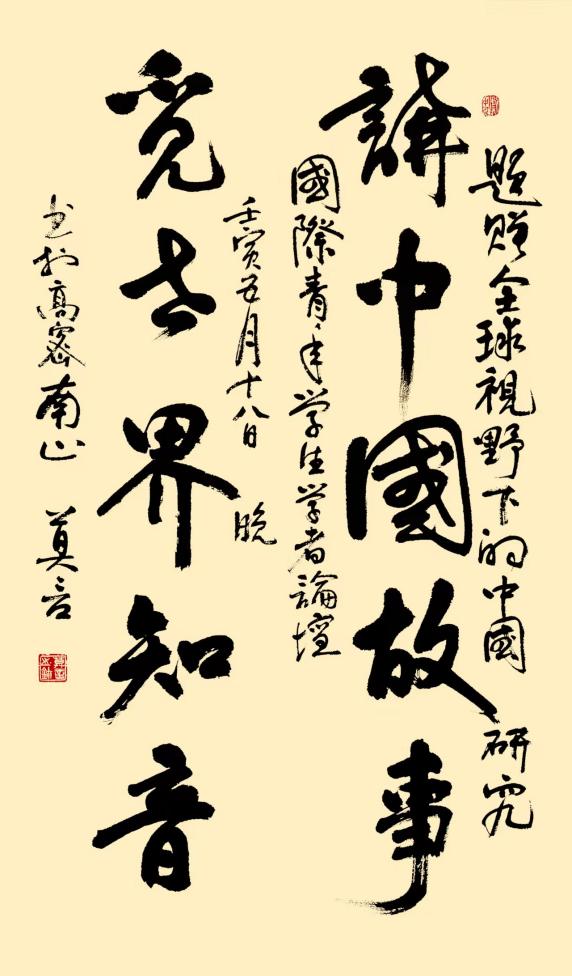 題贈全球視野下的中国研究
講中國故事
國際青年学生学者論壇
壬寅五月十八日晚
覓世界知音
书於高密南山 莫言